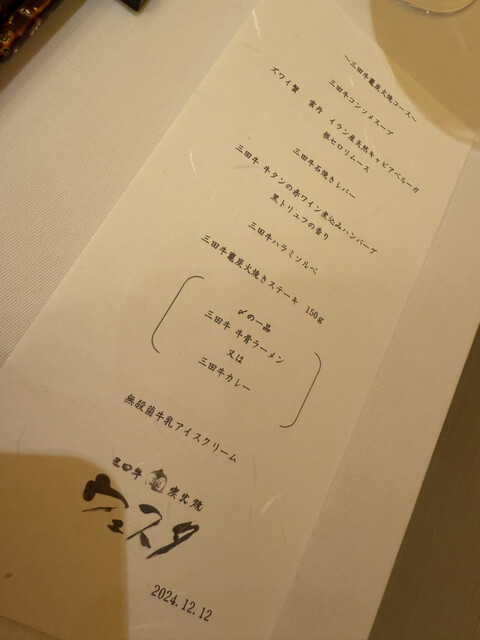 ～三田牛竈炭火焼コース～
三田牛コンソメスープ
ズワイ蟹　雲丹　イラン産天然キャビアベルーガ
根セロリムース
三田牛石焼きレバー
三田牛 牛タンの赤ワイン煮込みハンバーグ
黒トリュフの香り
三田牛ハラミソルベ
三田牛竈炭火焼きステーキ　150g
〆の一品
三田牛 牛骨ラーメン
又は
三田牛カレー
無殺菌牛乳アイスクリーム
三田牛 竈 炭火焼
ヴェスタ
2024.12.12